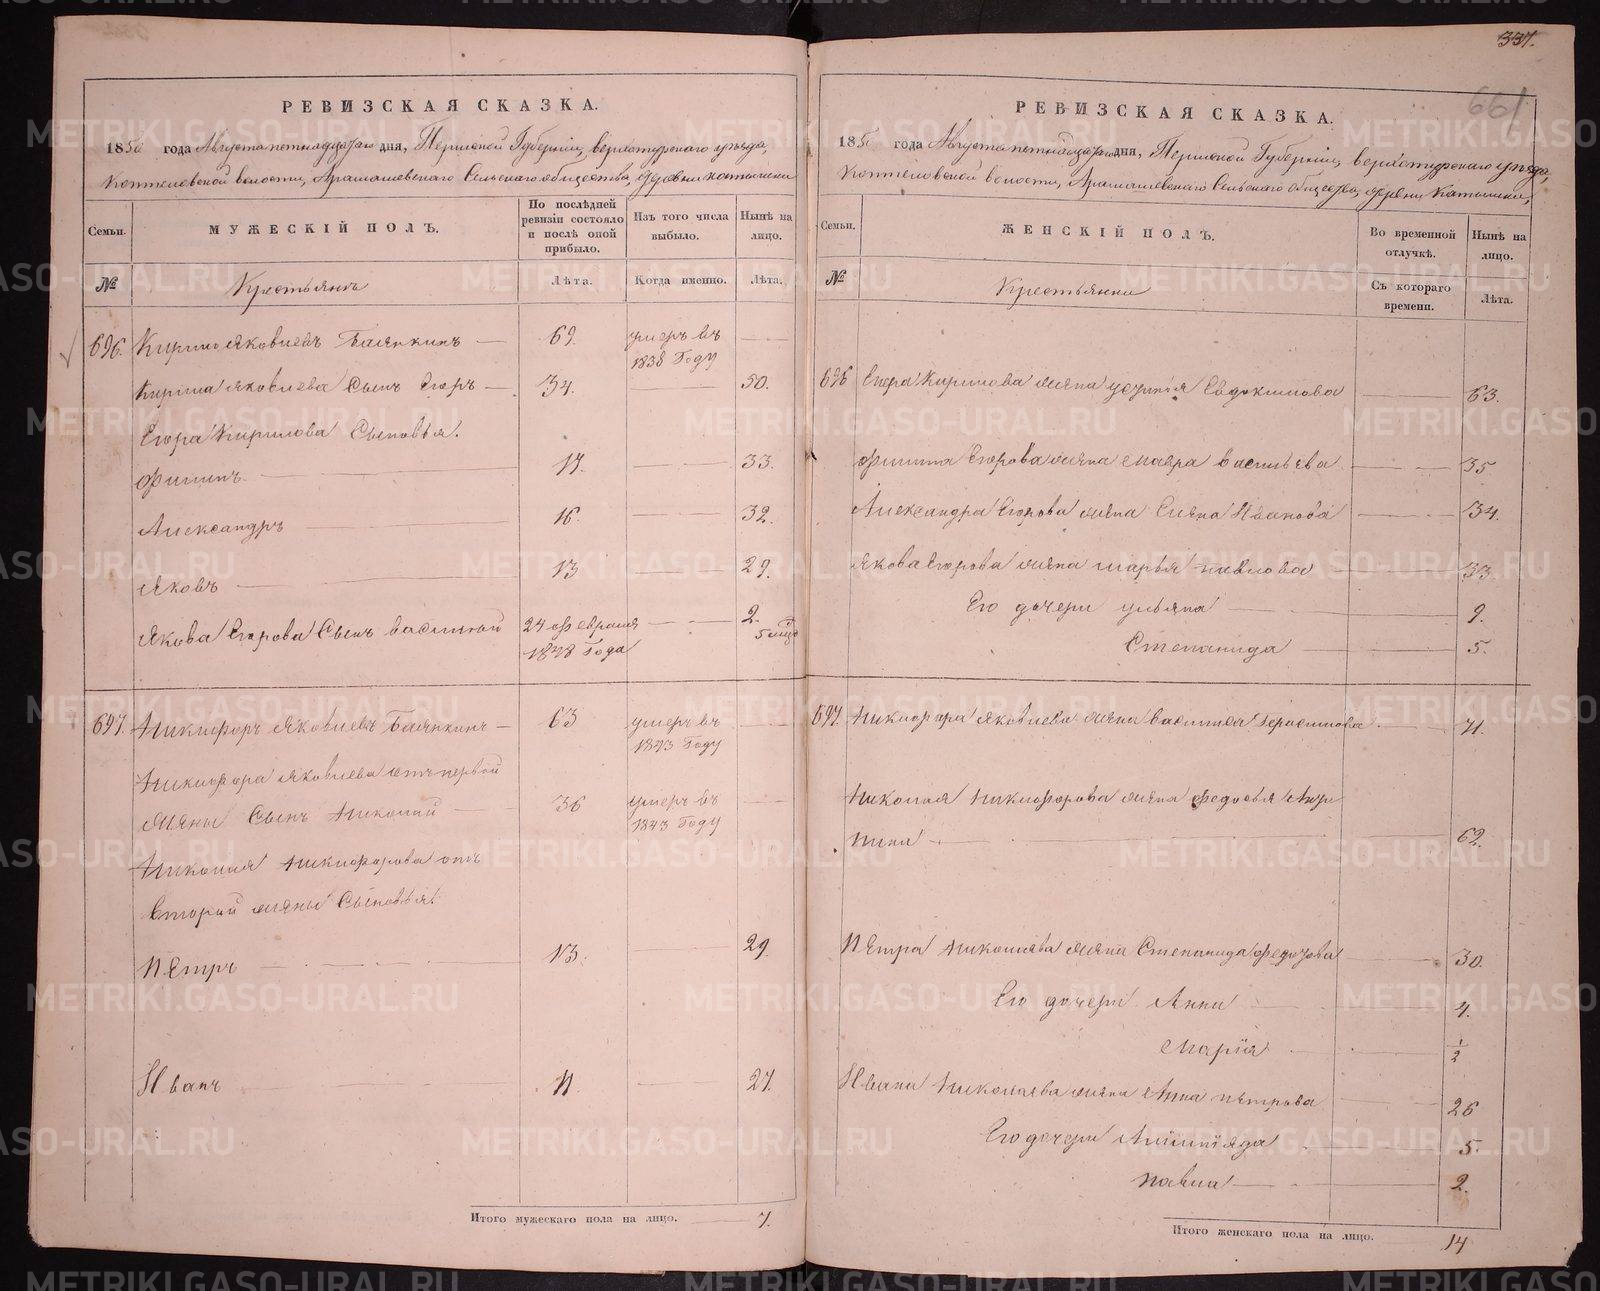 337.
661
РЕВИЗСКАЯ СКАЗКА.
1850 года Августа пятнадцатаго дня, Пермской Губерніи, верхотурскаго уезда,
Коптеловской волости, Арамашевскаго Сельскаго общества, деревни
Семьи.
МУЖЕСКІЙ ПОЛЪ.
По послѣдней ревизіи состояло и послѣ оной прибыло.
Изъ того числа выбыло.
Нынѣ на лицо.
№
Крестьянъ
Лѣта.
Когда именно.
Лѣта.
696. Кирило Яковлевъ Балянкинъ 69. умеръ въ 1838 Году
Кирила Яковлева Сынъ Егоръ 34. 50.
Егора Кирилова Сыновья.
Филипъ 17. 33.
Александръ 16. 32.
Яковъ 13 29.
Якова Егорова Сынъ василий 24 февраля 1848 Года 2.
697. Никифоръ Яковлевъ Балянкинъ 63 умеръ въ 1843 Году
Никифора Яковлева отъ первой
жены Сынъ Николай 36 умеръ въ 1843 Году
Николая Никифорова отъ
второй жены Сыновья.
Петръ 13. 29.
Иванъ 11 27.
Итого мужескаго пола на лицо. 7.
РЕВИЗСКАЯ СКАЗКА.
1850 года Августа пятнадцатаго дня, Пермской Губерніи, верхотурскаго уезда,
Коптеловской волости, Арамашевскаго Сельскаго общества, деревни
Семьи.
ЖЕНСКІЙ ПОЛЪ.
Во временной отлучкѣ.
Нынѣ на лицо.
№
Крестьянки
Съ котораго времени.
Лѣта.
696 Егора Кирилова жена Устинья Евдокимова 63.
Филипа Егорова жена Мавра васильева 35
Александра Егорова жена Елена Иванова 34.
Якова Егорова жена Марья павлова 33.
Его дочери ульяна 9.
Степанида 5.
697. Никифора Яковлева жена василиса Герасимова 71.
Николая Никифорова жена федосья Агри
пина 62.
Петра Николаева жена Степанида 30.
Его дочери Анна 4.
Марія 1/2
Ивана Николаева жена Анна петрова 26
Его дочери 5.
павла 2.
Итого женскаго пола на лицо. 14
METRIKI.GASO-URAL.RU